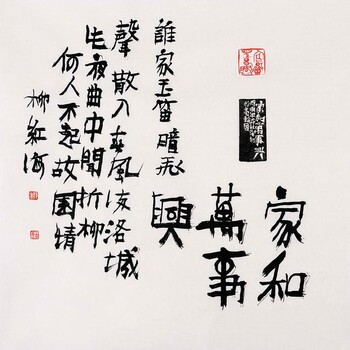 家和
萬事
興
誰家玉笛暗飛
聲散入春風滿洛城
此夜曲中聞折柳
何人不起故園情
柳紅海